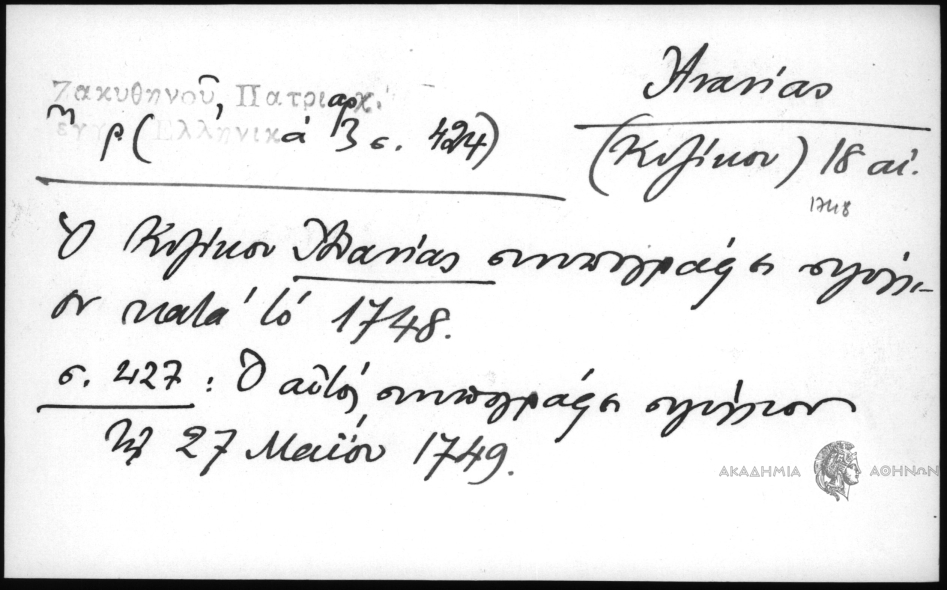 Ζακυθηνοῦ, Πατριαρχ.
ἔγγρ. Ἑλληνικά 3 σ. 424)
Ἀνανίας
(Κυζίκου) 18 αἰ.
1748
Ὁ Κυζίκου Ἀνανίας συνυπογράφει σιγίλλι-
ον κατὰ τὸ 1748.
σ. 427 : Ὁ αὐτὸς συνυπογράφει σιγίλλιον
τῇ 27 Μαΐου 1749.
ΑΚΑΔΗΜΙΑ ΑΘΗΝΩΝ